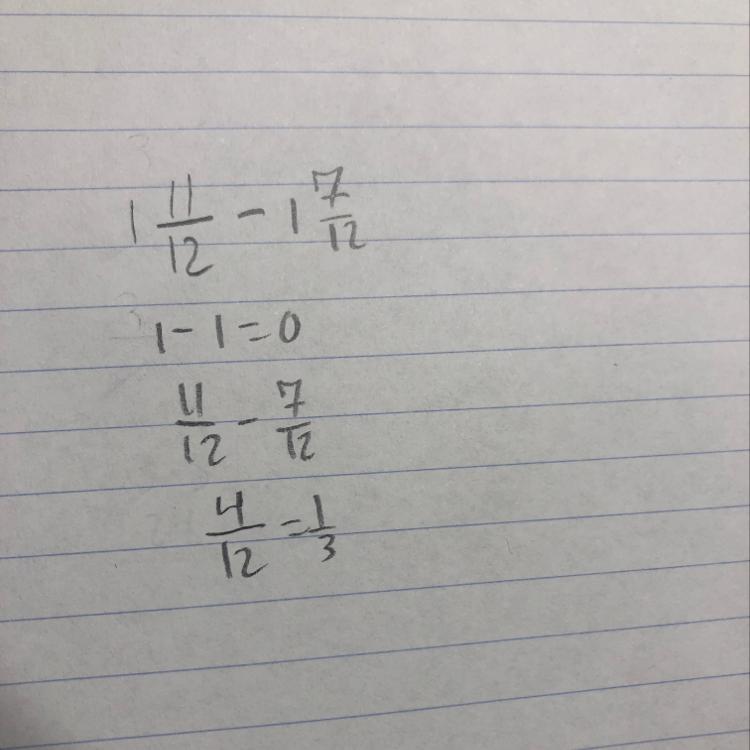 1 11/12 - 1 7/12
1 - 1 = 0
11/12 - 7/12
4/12 = 1/3